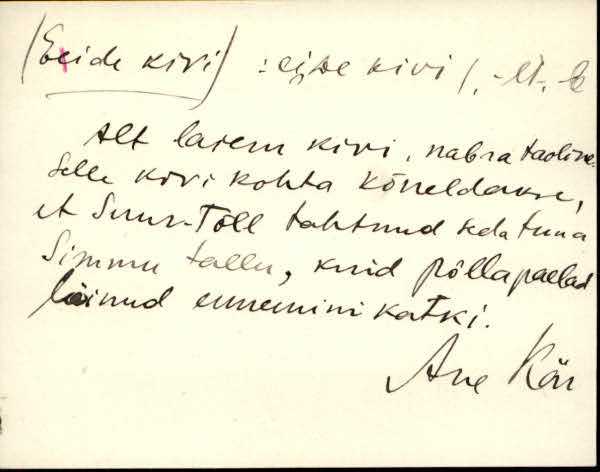 (Eeide kivi) : eiꞵe kivi /, -lt, -le
Alt laiem kivi, nabra taoline.
Selle kivi kohta kõneldakse,
et Suur-Tõll tahtnud seda tuua
Simmu tallu, kuid põllapaelad
läinud ennemini katki.
Are Kän